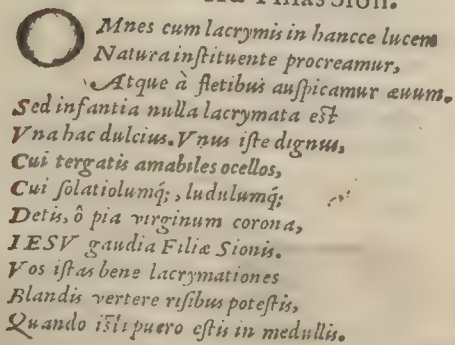 Filias Sion.
OMnes cum lacrymis in hancce lucem
Natura instituente procreamur,
Atque à fletibus auspicamur æuum.
Sed infantia nulla lacrymata est
Vna hac dulcius. Vnus iste dignus,
Cui tergatis amabiles ocellos,
Cui solatiolumq́;, ludulumq́;
Detis, ô pia virginum corona,
IESV gaudia Filiæ Sionis.
Vos istas bene lacrymationes
Blandis vertere risibus potestis,
Quando isti puero estis in medullis.